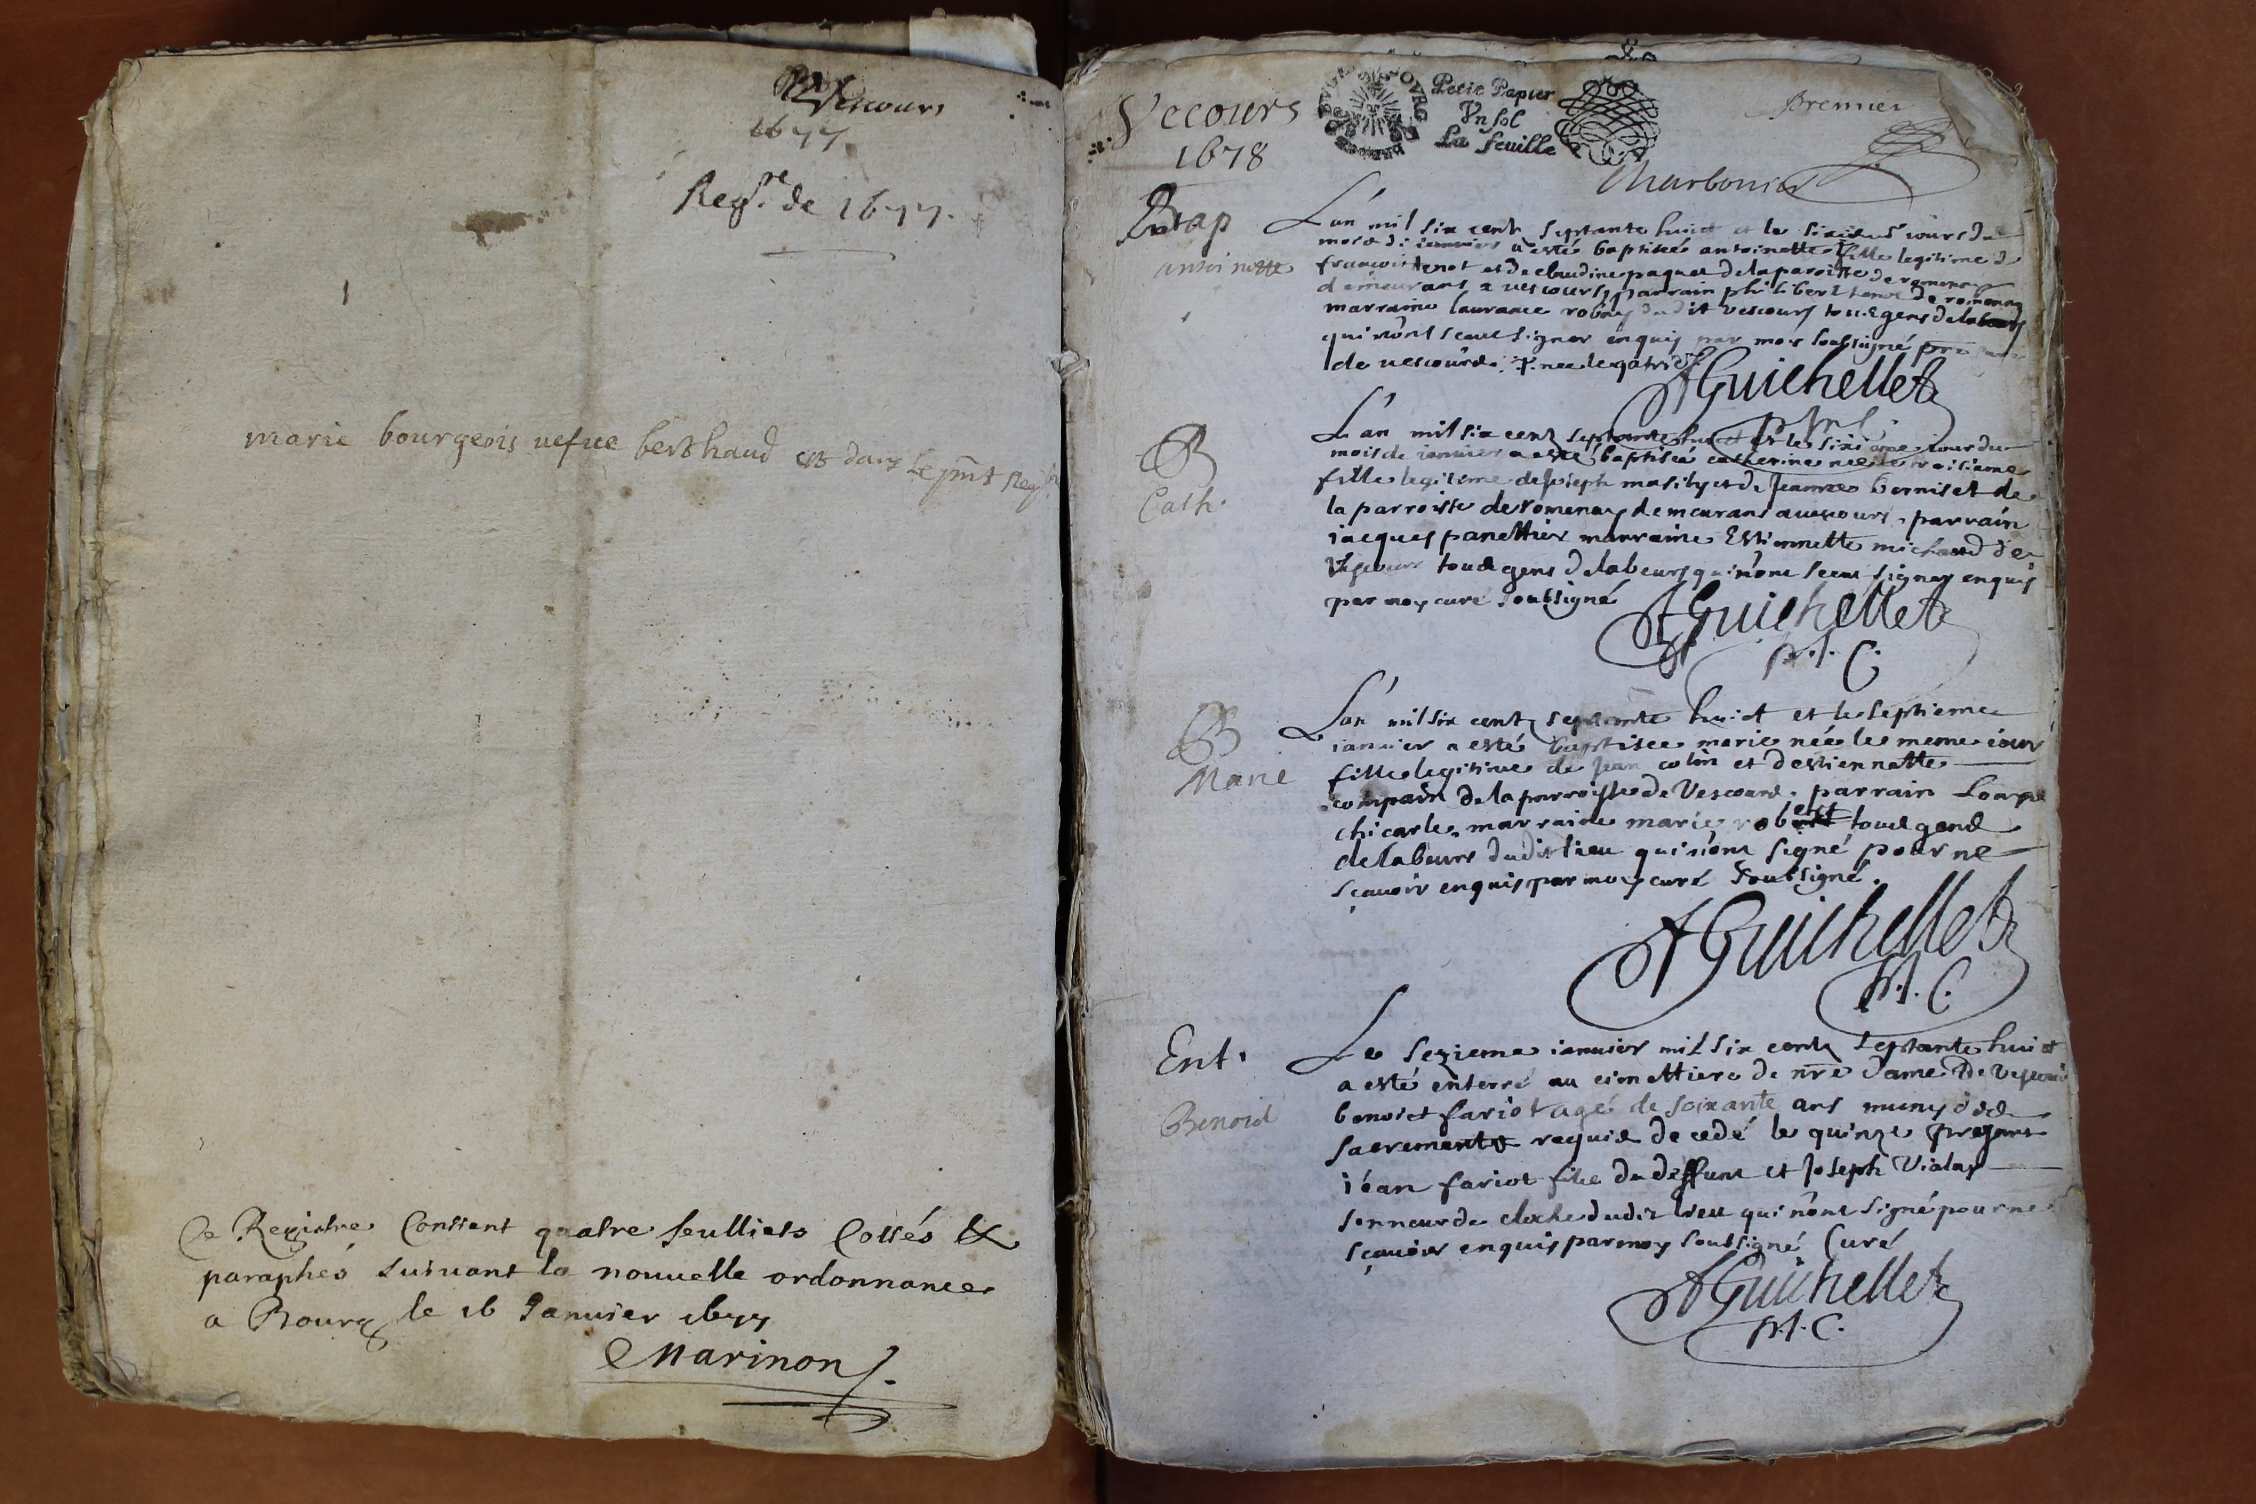 Vescours
1677
Regre de 1677.
marie bourgeois vefve berthaud est dans Le pnt Reg
Ce Registre Contient quatre feulliets Cottés &
paraphés suivant la nouvelle ordonnance
a Bourg le 16 Januier 1677
Marinon
Vecours
1678
Petit Papier
Vn sol
La feuille
premier
Charbonier
Bap
antoinette
L'an mil six cent septante huict et le sixieme iour du
mois de ianvier a esté baptisée antoinette fille legitime de
francois tenot et de claudine paquet de la paroisse de romenay
demeurans a vescours, parrain philibert tenot de romenay
marraine laurance robin du dit vescours tous gens de labeurs
qui n'ont sceut signer enquis par moy soubsigné
de vescours.
AGuichellet
B
Cath.
L'an mil six cent septante huict et le sixieme iour du
mois de ianvier a esté baptisée catherine née le troisieme
fille legitime de Joseph masily et de Jeanne berniset de
la parroisse de romenay demeurans a vescours, parrain
iacques panettier marraine Estiennette michaud de
Vescours tous gens de labeurs qui n'ont sceut signer enquis
par moy curé soubsigné
AGuichellet
p.t. C.
B
Marie
L'an mil six cent septante huict et le septieme
ianvier a esté baptisee marie née le meme iour
fille legitime de Jean colin et destiennette
compain de la parroisse de Vescours. parrain
chicarle, marraine marie robert tous gens
de labeurs dudit lieu qui n'ont signé pour ne
sçavoir enquis par moy curé soubsigné.
AGuichellet
p.t. C.
Ent.
Benoid
Le sezieme ianvier mil six cent septante huict
a esté enterré au cimettiere de nre dame de Vescours
benoict fariot agé de soixante ans muny des
sacrements requis decedé le quinze presens
iean fariot filz du deffunt et Joseph Vialay
sonneur de cloche dudit lieu qui n'ont signé pour ne
sçavoir enquis par moy soubsigné Curé
AGuichellet
p.t. C.